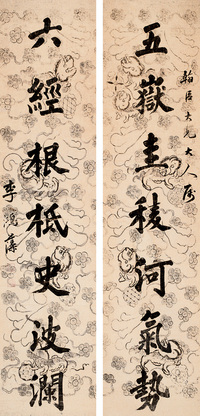 五嶽圭稜河氣勢
翰臣大兄大人屬
六經根柢史波瀾
李鴻藻